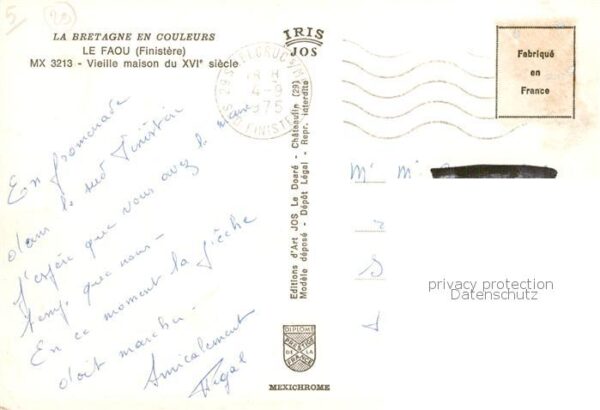 5 (29)
LA BRETAGNE EN COULEURS
LE FAOU (Finistère)
MX 3213 - Vieille maison du XVIe siècle
En promenade
dans le sud Finistère
j'espère que vous avez le même
temps que nous -
En ce moment la pêche
doit marcher -
Amicalement
Rigal
IRIS
JOS
4-9
1975
FINISTERE
Editions d'Art JOS Le Doaré - Châteaulin (29)
Modèle déposé - Dépôt Légal - Repr. interdite
DIPLOME
PRESTIGE
DE LA
FRANCE
MEXICHROME
Fabriqué
en
France
Mr Mme
privacy protection
Datenschutz